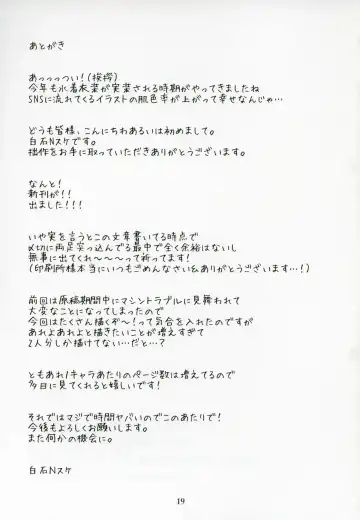 あとがき
あっっっつい！(挨拶)
今年も水着衣装が実装される時期がやってきましたね
SNSに流れてくるイラストの肌色率が上がって幸せなんじゃ…
どうも皆様、こんにちわあるいは初めまして。
白石Nスケです。
拙作をお手に取っていただきありがとうございます。
なんと！
新刊が！！
出ました！！！
いや実を言うとこの文章書いてる時点で
〆切に両足突っ込んでる最中で全く余裕はないし
無事に出てくれ〜〜〜って祈ってます！
(印刷所様本当にいつもごめんなさい&ありがとうございます…！)
前回は原稿期間中にマシントラブルに見舞われて
大変なことになってしまったので
今回はたくさん描くぞ〜！って気合を入れたのですが
あれよあれよと描きたいことが増えすぎて
2人分しか描けてない…だと…？
ともあれ1キャラあたりのページ数は増えてるので
多目に見てくれると嬉しいです！
それではマジで時間ヤバいのでこのあたりで！
今後もよろしくお願いします。
また何かの機会に。
白石Nスケ
19